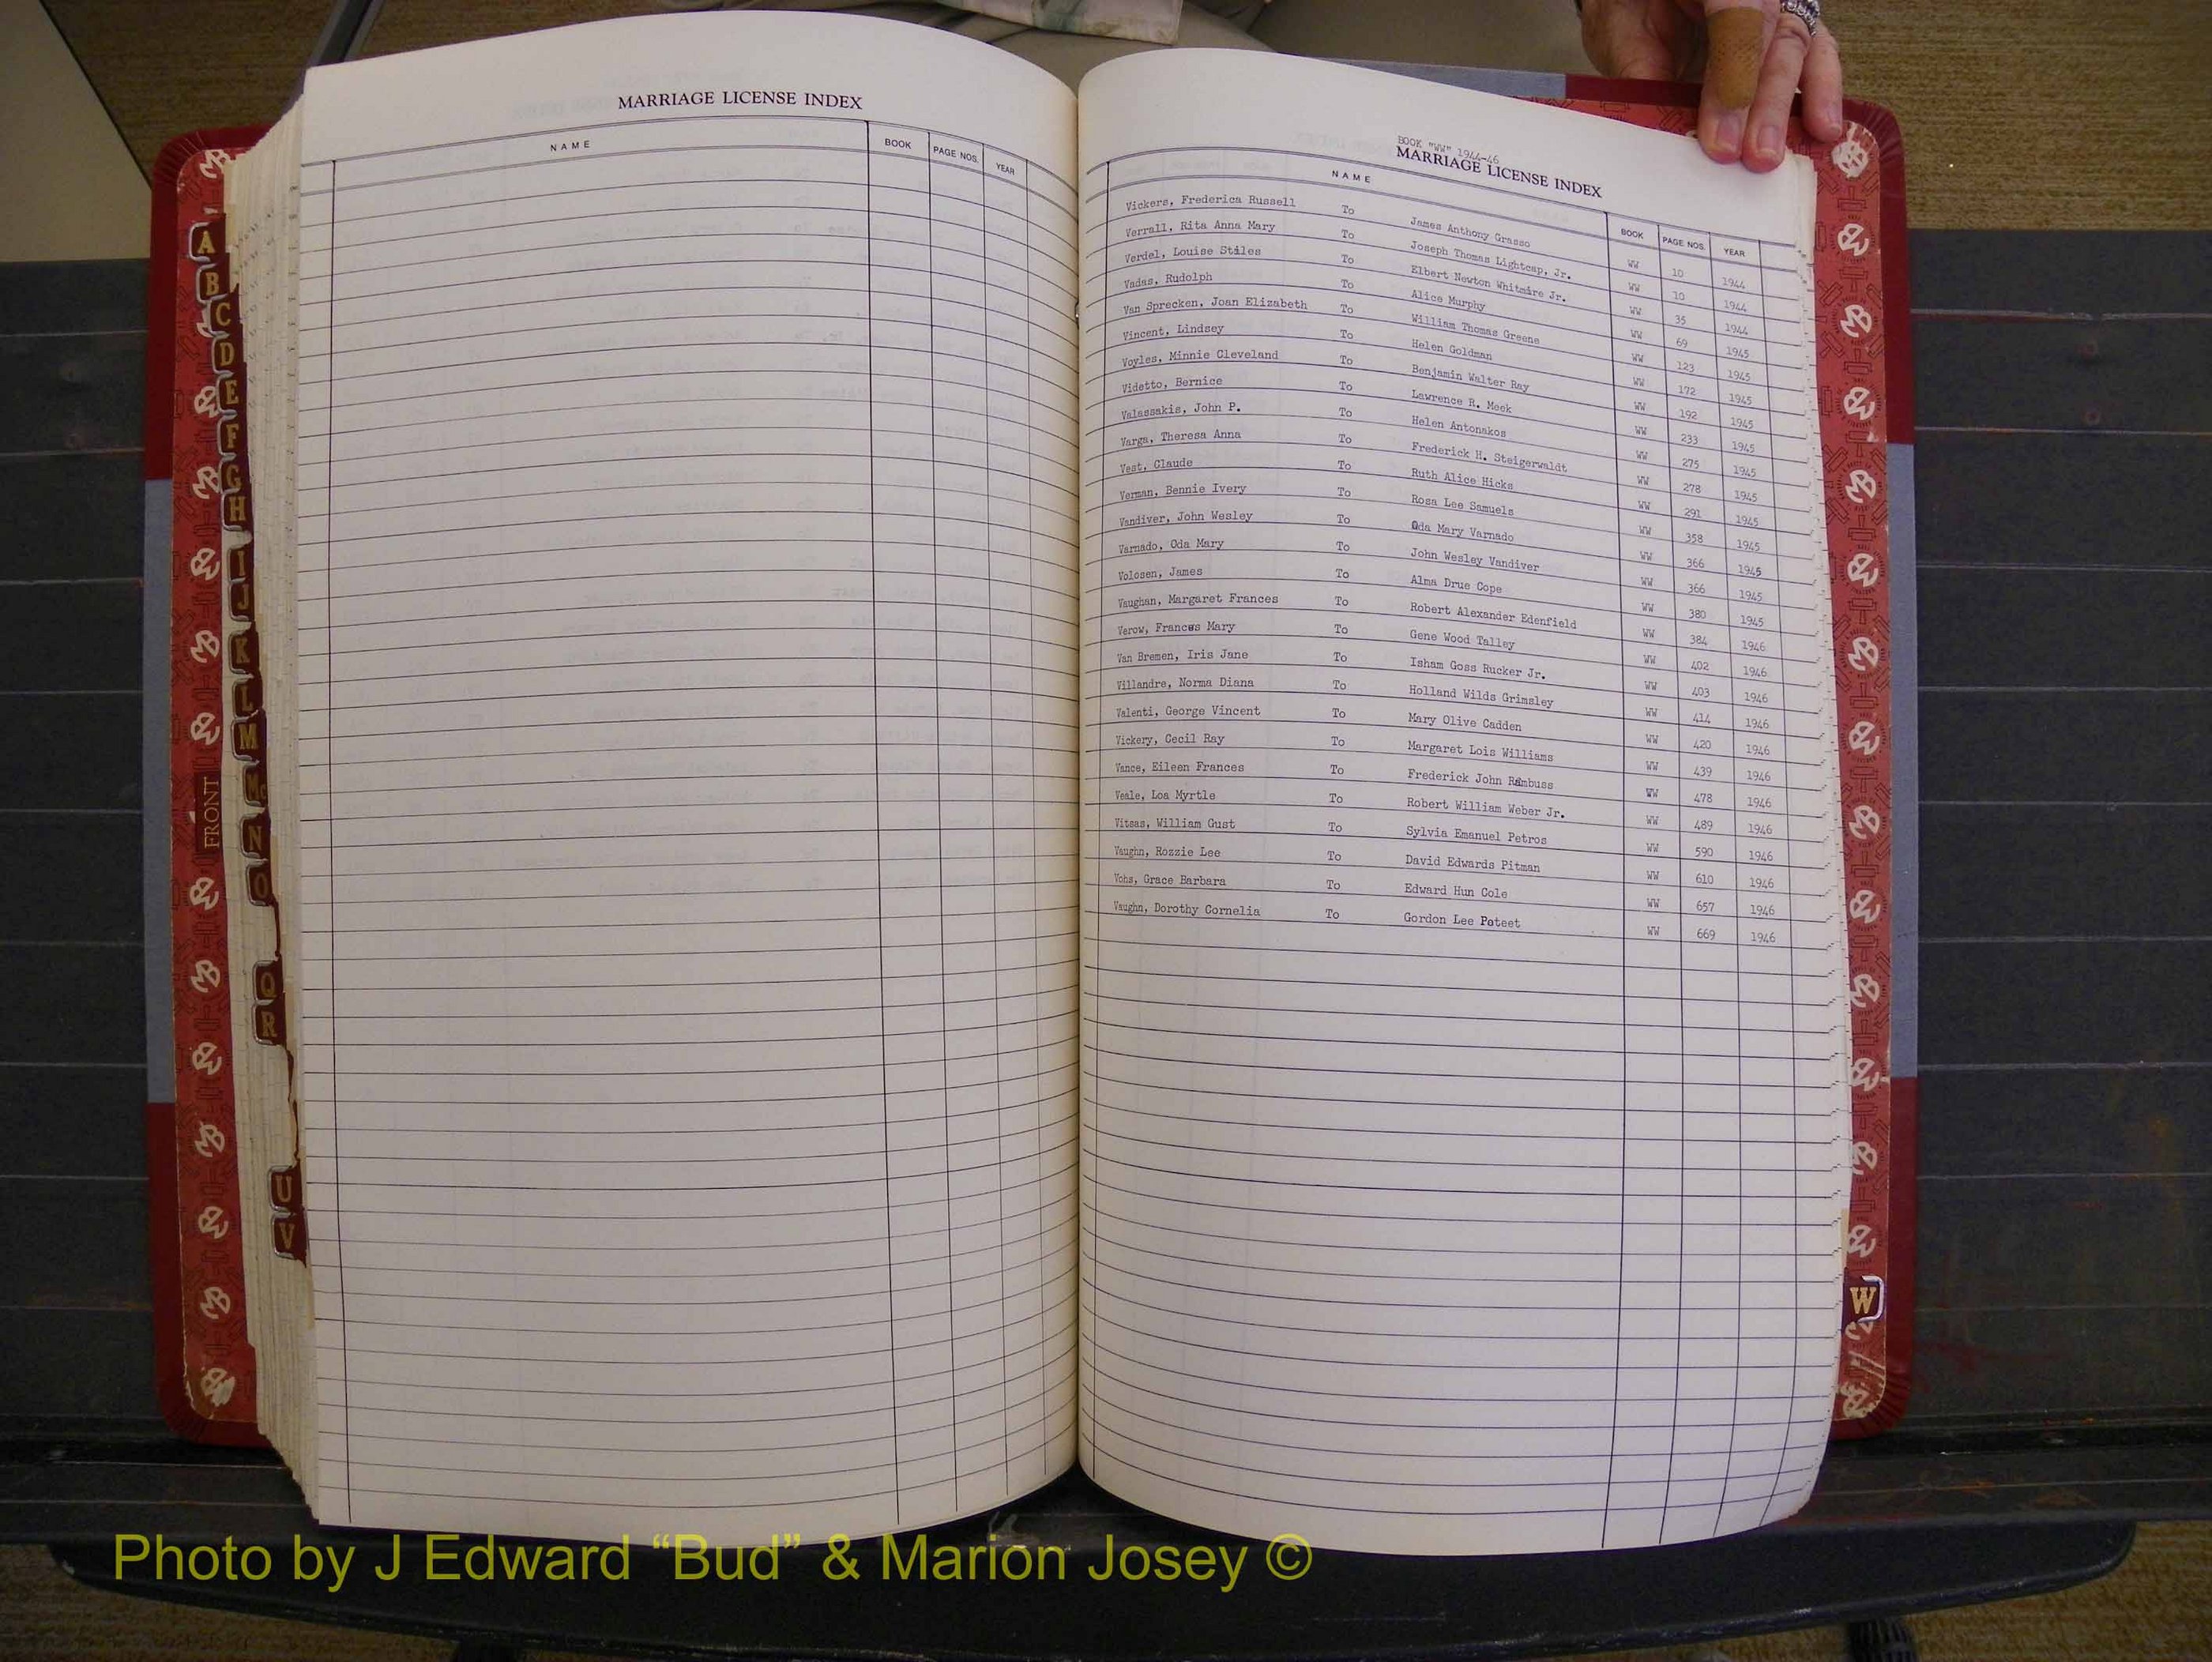 MARRIAGE LICENSE INDEX
NAME BOOK PAGE NOS. YEAR
BOOK "WW" 1944-46
MARRIAGE LICENSE INDEX
NAME BOOK PAGE NOS. YEAR
Vickers, Frederica Russell To James Anthony Grasso WW 10 1944
Verrall, Rita Anna Mary To Joseph Thomas Lightcap, Jr. WW 10 1944
Verdel, Louise Stiles To Elbert Newton Whitmire Jr. WW 35 1944
Vadas, Rudolph To Alice Murphy WW 69 1945
Van Sprecken, Joan Elizabeth To William Thomas Greene WW 123 1945
Vincent, Lindsey To Helen Goldman WW 172 1945
Voyles, Minnie Cleveland To Benjamin Walter Ray WW 192 1945
Videtto, Bernice To Lawrence R. Meek WW 233 1945
Valassakis, John P. To Helen Antonakos WW 275 1945
Varga, Theresa Anna To Frederick H. Steigerwaldt WW 278 1945
Vest, Claude To Ruth Alice Hicks WW 291 1945
Verman, Bennie Ivery To Rosa Lee Samuels WW 358 1945
Vandiver, John Wesley To Oda Mary Varnado WW 366 1945
Varnado, Oda Mary To John Wesley Vandiver WW 366 1945
Volosen, James To Alma Drue Cope WW 380 1945
Vaughan, Margaret Frances To Robert Alexander Edenfield WW 384 1946
Verow, Frances Mary To Gene Wood Talley WW 402 1946
Van Bremen, Iris Jane To Isham Goss Rucker Jr. WW 403 1946
Villandre, Norma Diana To Holland Wilds Grimsley WW 414 1946
Valenti, George Vincent To Mary Olive Cadden WW 420 1946
Vickery, Cecil Ray To Margaret Lois Williams WW 439 1946
Vance, Eileen Frances To Frederick John Rambuss WW 478 1946
Veale, Loa Myrtle To Robert William Weber Jr. WW 489 1946
Vitsas, William Gust To Sylvia Emanuel Petros WW 590 1946
Vaughn, Rozzie Lee To David Edwards Pitman WW 610 1946
Vohs, Grace Barbara To Edward Hun Cole WW 657 1946
Vaughn, Dorothy Cornelia To Gordon Lee Poteet WW 669 1946
A
B
C
D
E
F
G
H
I
J
K
L
M
Mc
N
O
Q
R
U
V
FRONT
W
Photo by J Edward “Bud” & Marion Josey ©